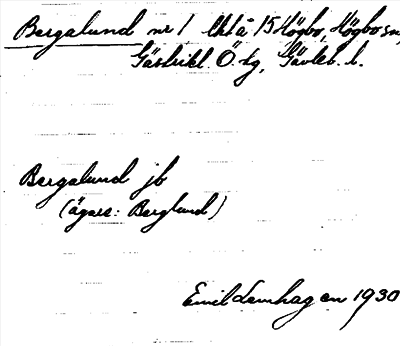 Bergalund nr 1 lktå 15 Högbo, Högbo sn,
Gästrikl. Ö. tg, Gävleb. l.
Bergalund jb
(ägare: Berglund)
Emil Lemhagen 1930